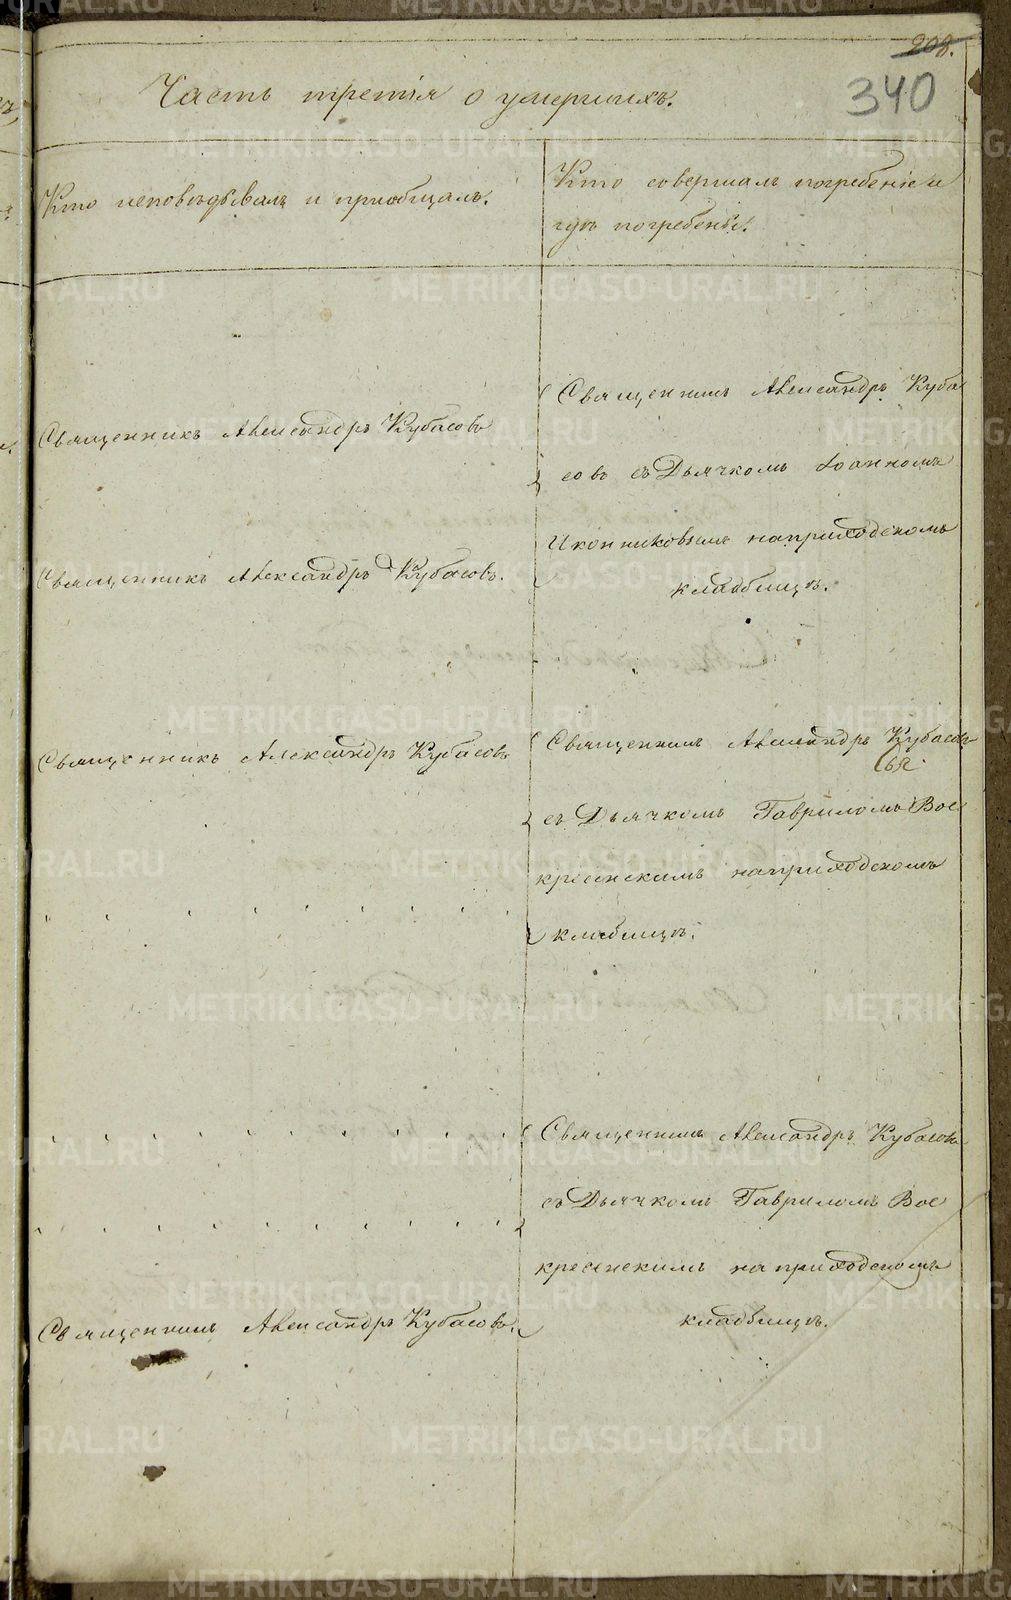 208.
340
Часть третія о умершихъ.
Кто исповѣдывалъ и приобщалъ.
Кто совершалъ погребеніе и
гдѣ погребены.
Священникъ Александръ Куба
совъ съ Дьячкомъ Іоанномъ
Иконниковымъ на приходскомъ
кладбищѣ.
Священникъ Александръ Кубасовъ
Священникъ Александръ Кубасовъ.
Священникъ Александръ Кубасовъ
Священникъ Александръ Кубасовъ
съ Дьячкомъ Гавриломъ Вос
кресенскимъ на приходскомъ
кладбищѣ.
Священникъ Александръ Кубасовъ
съ Дьячкомъ Гавриломъ Вос
кресенскимъ на приходскомъ
кладбищѣ.
Священникъ Александръ Кубасовъ.
METRIKI.GASO-URAL.RU